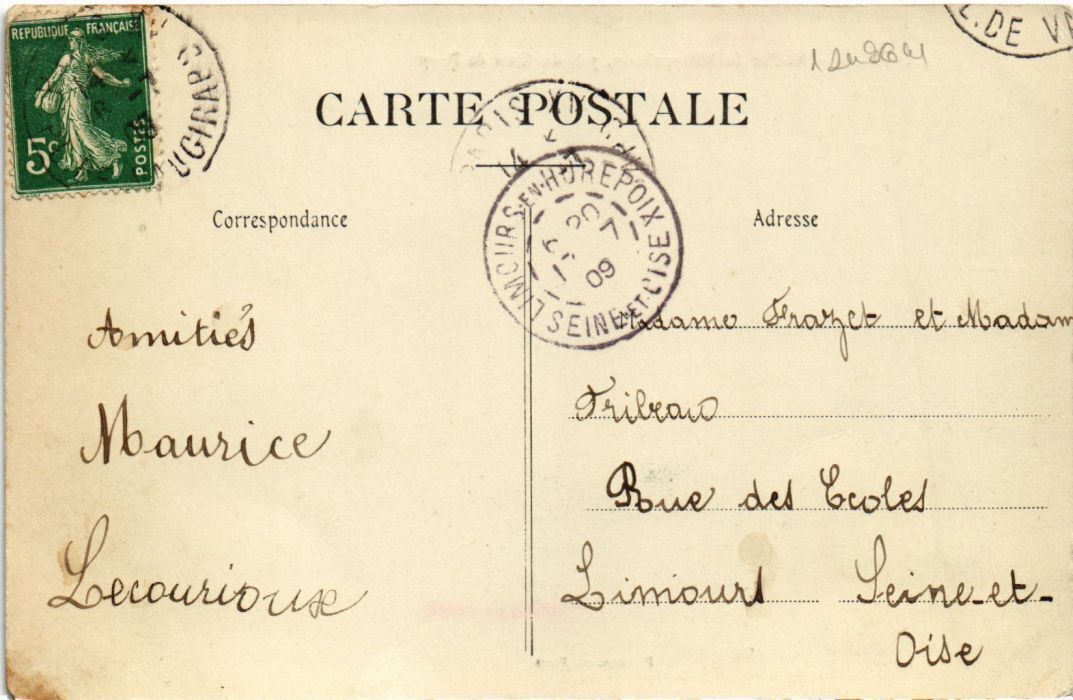 REPUBLIQUE FRANÇAISE
5c
POSTES
UGIRARD
DE
CARTE POSTALE
PARIS XV
14
LIMOURS-EN-HUREPOIX
20 7
09
SEINE-ET-OISE
Correspondance
Adresse
Amitiés
Maurice
Lecourioux
Madame Frazet et Madam
Rue des Ecoles
Limours Seine-et-
Oise